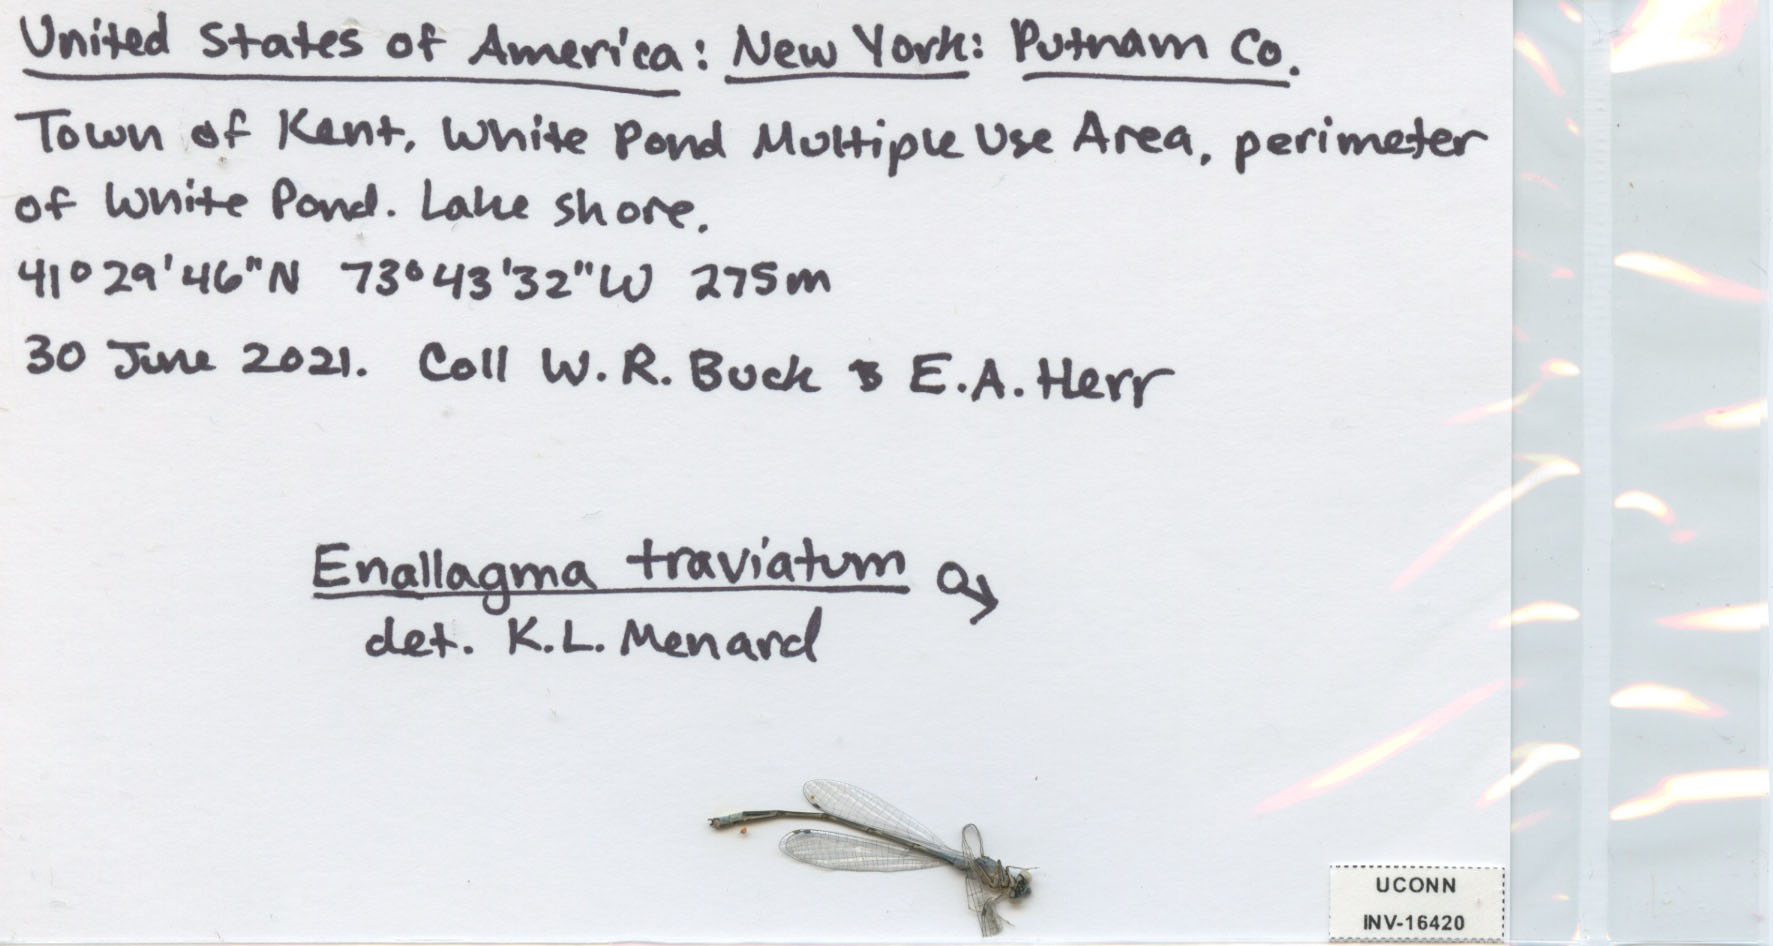 United States of America: New York: Putnam Co.
Town of Kent, White Pond Multiple Use Area, perimeter
of White Pond. Lake shore.
41°29'46"N 73°43'32"W 275m
30 June 2021. Coll W.R. Buck & E.A. Herr
Enallagma traviatum ♂
det. K.L. Menard
UCONN
INV-16420